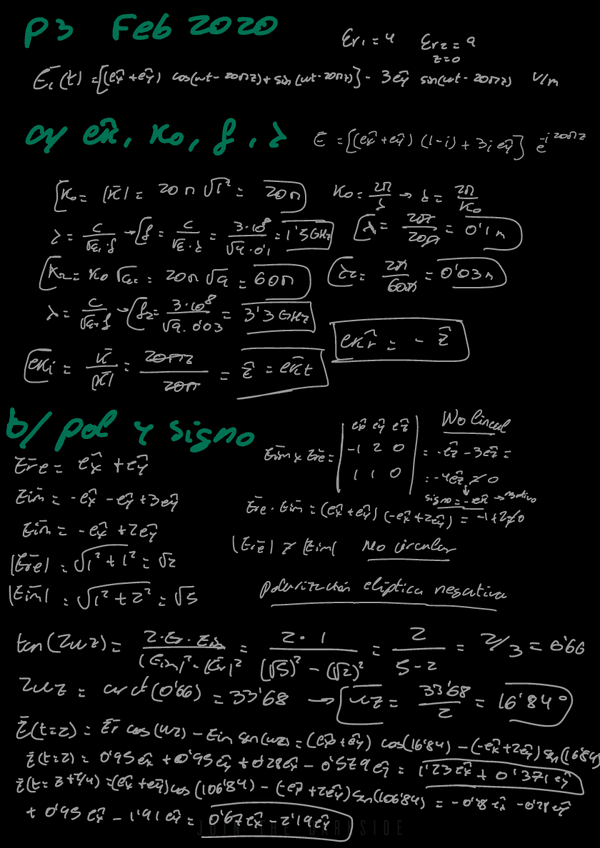 P3 Feb 2020
Er1 = 4 Er2 = 9
z=0
Ei(t) = [(ex+ey) cos(wt-20πz)+sin(wt-20πz)] - 3ey sin(wt-20πz) V/m
a/ ek, K0, f, λ E = [(ex+ey)(1-i)+3i ey] e^-j20πz
K0 = |K| = 20π √1² = 20π K0 = 2π/λ → λ = 2π/K0
λ = c/√εr·f → f = c/√εr·λ = 3·10^8/√9·0'1 = 1'5GHz λ = 2π/20π = 0'1m
K2 = K0 √εr2 = 20π √9 = 60π λ2 = 2π/60π = 0'03m
λ = c/√εr·f → f2 = 3·10^8/√9·0'03 = 3'3GHz
ekr = - z
eki = K/|K| = 20πz/20π = z = ekt
b/ pol y signo
No lineal
Ere = ex + ey
Eim = -ex - ey + 3ey
Eim = -ex + 2ey
Eim x Ere = | ex ey ez | -1 2 0 | 1 1 0 | = -ez - 3ez =
= -4ez ≠ 0
signo = -ek → negativo
Ere · Eim = (ex+ey)(-ex+2ey) = -1+2≠0
|Ere| = √1²+1² = √2
|Ere| ≠ |Eim| No circular
|Eim| = √1²+2² = √5
polarización elíptica negativa
tan(2wz) = 2·Er·Eim/|Eim|²-|Er|² = 2·1/(√5)²-(√2)² = 2/5-2 = 2/3 = 0'66
2wz = arct(0'66) = 33'68 → wz = 33'68/2 = 16'84°
E(t=z) = Er cos(wz) - Eim sen(wz) = (ex+ey) cos(16'84) - (-ex+2ey) sen(16'84)
E(t=z) = 0'95 ex + 0'95 ey + 0'28 ex - 0'579 ey = 1'23 ex + 0'371 ey
E(t=z+T/4) = (ex+ey) cos(106'84) - (-ex+2ey) sen(106'84) = -0'28 ex - 0'28 ey
+ 0'95 ex - 1'91 ey = 0'67 ex - 2'19 ey